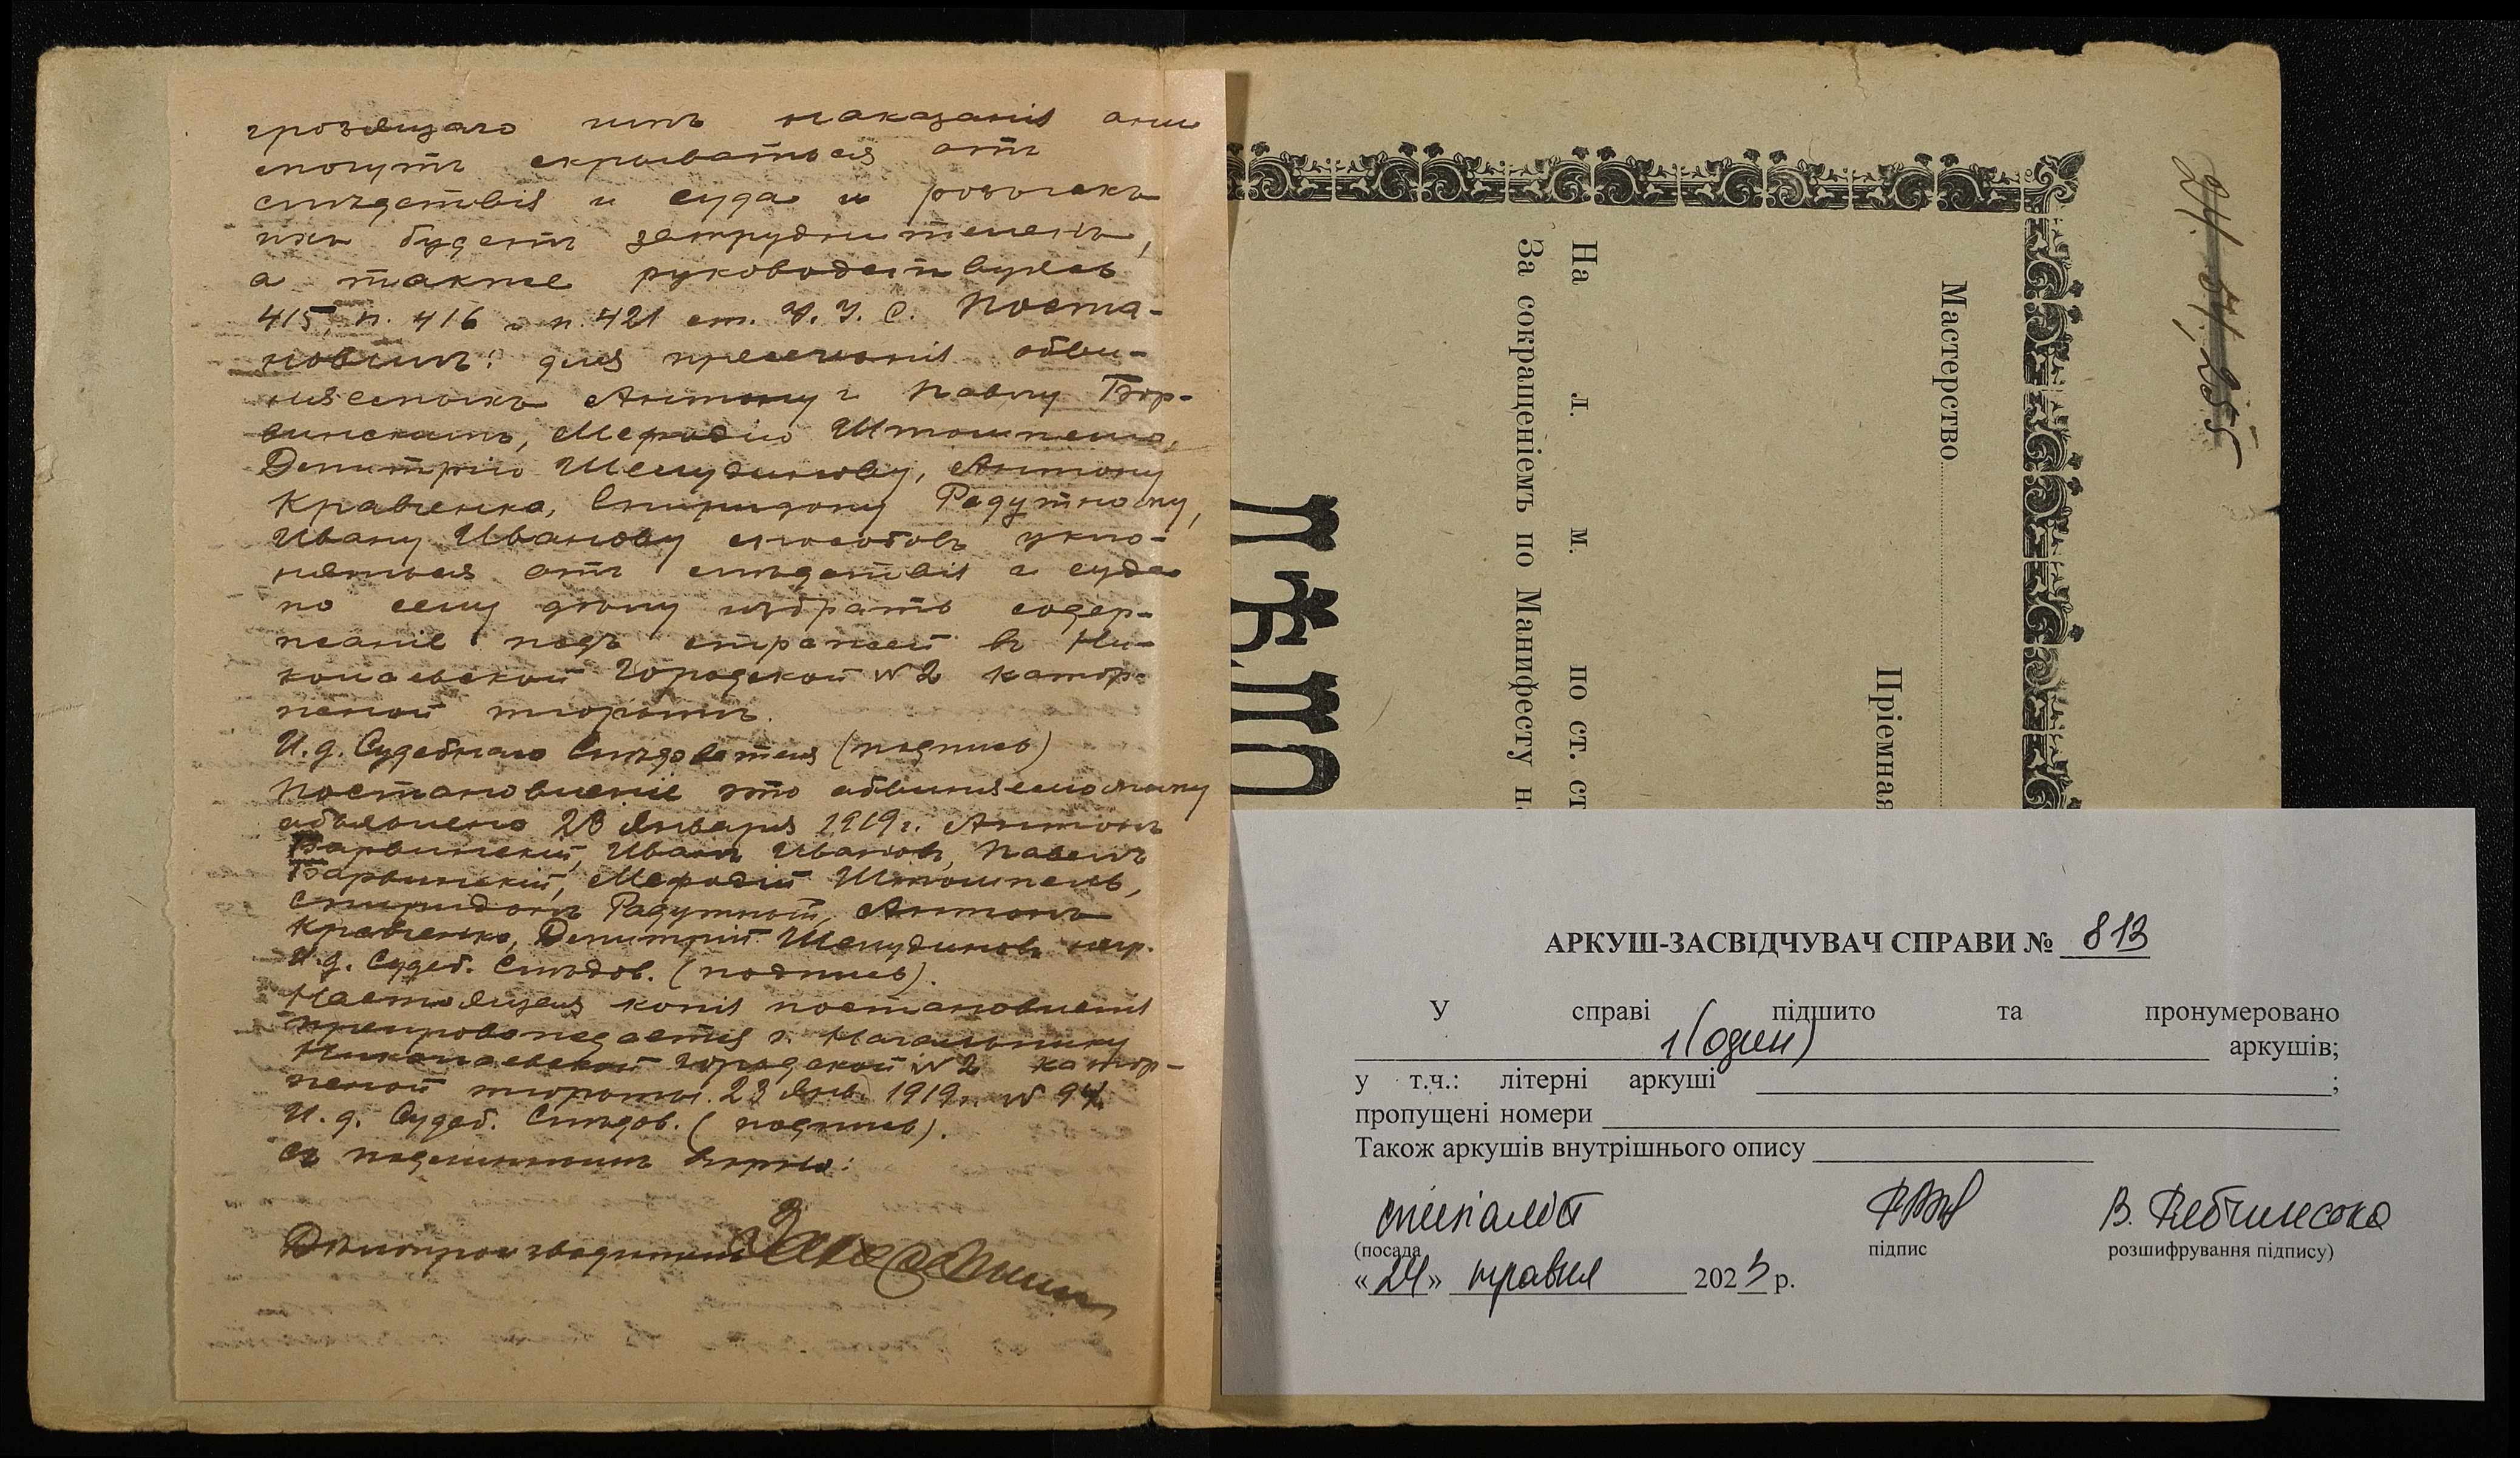 грозящаго имъ наказанія они
смогутъ скрываться отъ
слѣдствія и суда и розыскъ
ихъ будетъ затруднителенъ,
а также руководствуясь
415, п. 416 и п. 421 ст. У. У. С. Поста-
новилъ: для пресеченія обви-
няемымъ Антону и Павлу Бар-
винскимъ, Мефодію Штомпелю,
Дмитрію Шелудикову, Антону
Кравченко, Спиридону Радутному,
Ивану Иванову способовъ укло-
няться отъ слѣдствія и суда
по сему дѣлу избрать содер-
жаніе подъ стражей въ Ни-
колаевской Городской № 2 катор-
жной тюрьмѣ.
И. д. Судебнаго Слѣдователя (подпись)
Постановленіе это обвиняемому
объявлено 23 Января 1919 г. Антонъ
Барвинскій, Иванъ Ивановъ, Павелъ
Барвинскій, Мефодій Штомпель,
Спиридонъ Радутный, Антонъ
Кравченко, Дмитрій Шелудиковъ
И. д. Судеб. Слѣдов. (подпись).
Настоящая копія постановленія
препровождается г. Начальнику
Николаевской Городской № 2 катор-
жной тюрьмы. 23 Янв. 1919 г. № 94
И. д. Судеб. Слѣдов. (подпись).
Съ подлиннымъ вѣрно:
Дѣлопроизводитель
21. 51, 255
Мастерство
Пріемная
На л. м. по ст. ст
За сокращеніемъ по Манифесту на
ДѢЛО
АРКУШ-ЗАСВІДЧУВАЧ СПРАВИ № 813
У справі підшито та пронумеровано
1 (один) аркушів;
у т.ч.: літерні аркуші ;
пропущені номери
Також аркушів внутрішнього опису
спеціаліст В.
(посада підпис розшифрування підпису)
«24» травня 2023 р.